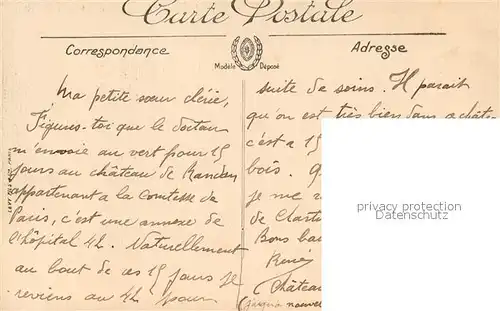 Carte Postale
Correspondance
Adresse
Modèle Déposé
Ma petite sœur chérie,
Figures-toi que le docteur
m'envoie au vert pour 15
jours au château de Randan
appartenant a la Comtesse de
Paris, c'est une annexe de
l'hôpital 42. Naturellement
au bout de ces 15 jours je
reviens au 42 pour
suite de soins. Il parait
qu'on est très bien dans
c'est a 15
bois.
je me
de
Bons
René
Château
privacy protection
Datenschutz